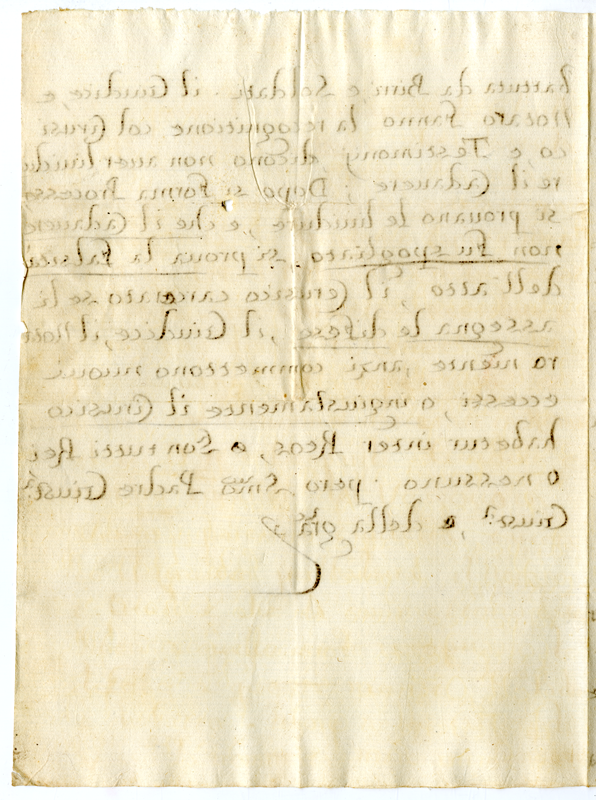 battuta da Birri e Soldati . il Giudice, e
Notaro fanno la recognitione col Cirusi
co, e Testimony dicono non auer liuidu
re il Cadauere ; Dopo si forma Processo
si prouano le liuidure, e che il Cadauere
non fu spogliato, si proua la falsità
dell'atto, il Cerusico carcerato se li
assegna le difese, il Giudice, il Nota
ro niente, anzi commettono nuoui
eccessi, o ingiustamente il Cirusico
habetur inter Reos, o son tutti Rei
o nessuno però Padre Giust.ª
Giust.ª, e della gra